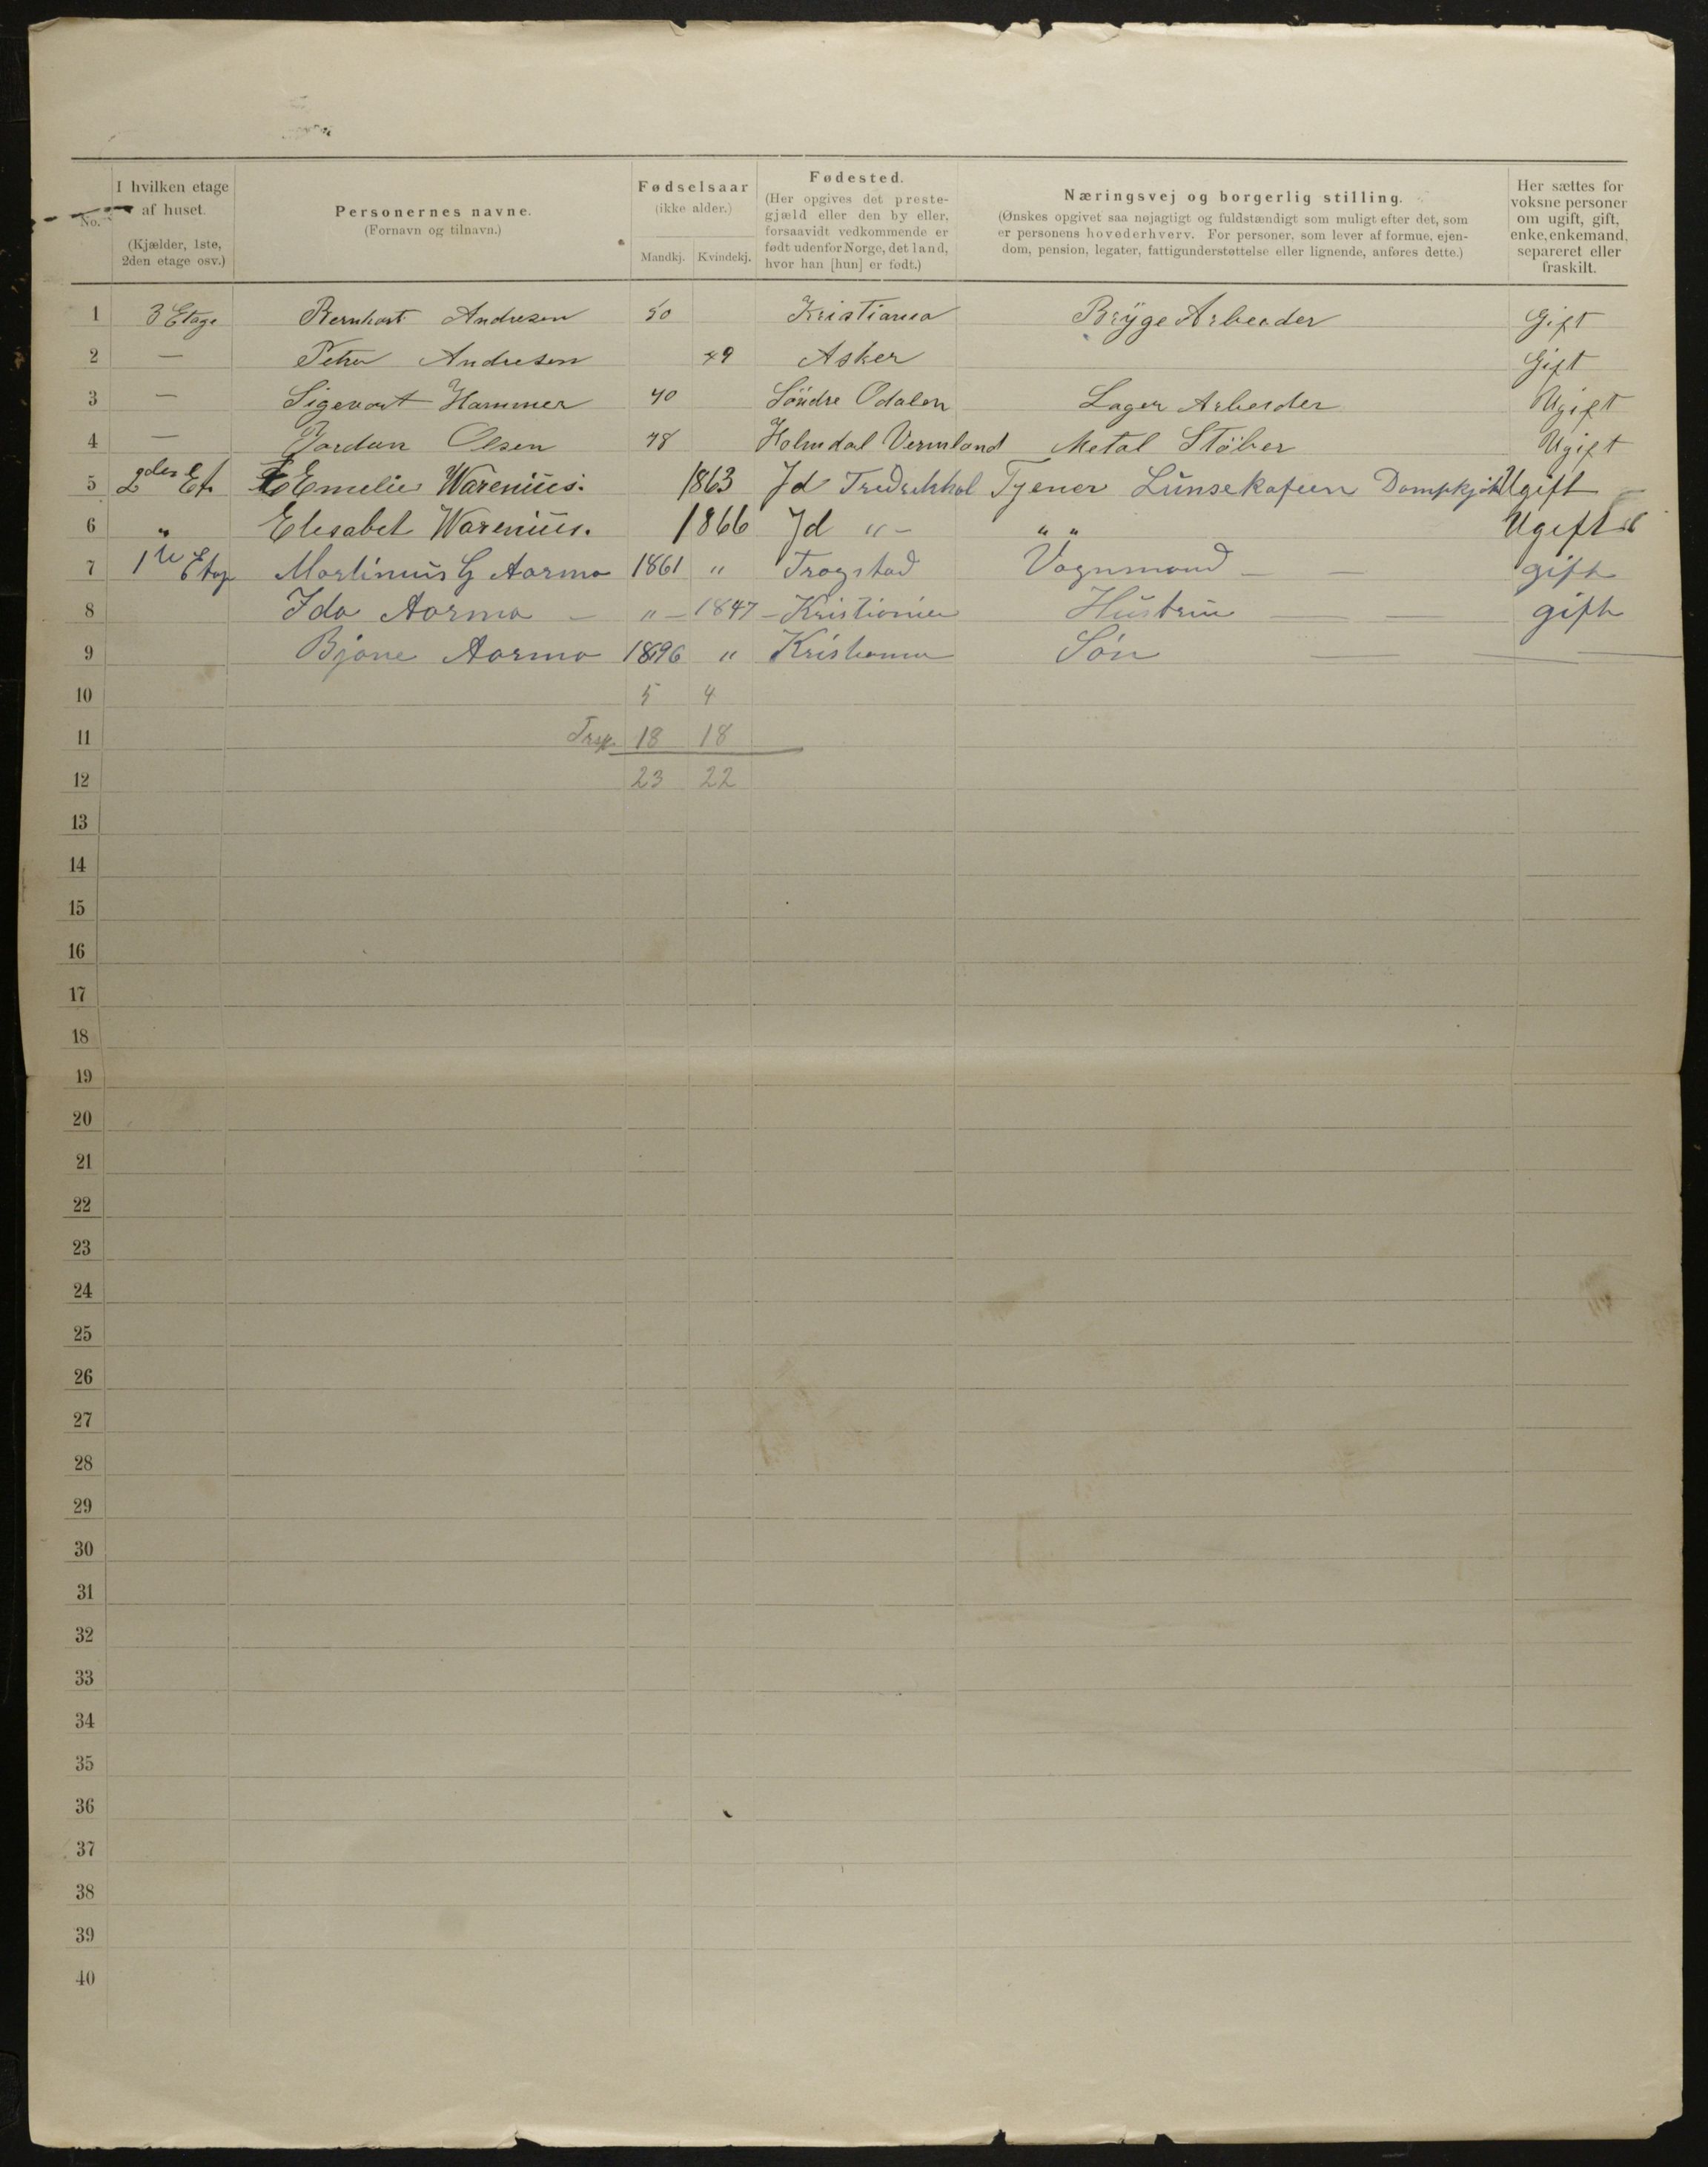 No.
I hvilken etage af huset.
(Kjælder, 1ste, 2den etage osv.)
Personernes navne.
(Fornavn og tilnavn.)
Fødselsaar
(ikke alder.)
Mandkj. Kvindekj.
Fødested.
(Her opgives det prestegjæld eller den by eller, forsaavidt vedkommende er født udenfor Norge, det land, hvor han [hun] er født.)
Næringsvej og borgerlig stilling.
(Ønskes opgivet saa nøjagtigt og fuldstændigt som muligt efter det, som er personens hovederhverv. For personer, som lever af formue, ejendom, pension, legater, fattigunderstøttelse eller lignende, anføres dette.)
Her sættes for voksne personer om ugift, gift, enke, enkemand, separeret eller fraskilt.
1 3 Etage Bernhart Andresen 50 Kristiania Bryge Arbeider Gift
2 — Petra Andresen 49 Asker Gift
3 — Sigevart Hammer 40 Söndre Odalen Lager Arbeider Ugift
4 — Olsen 78 Holmdal Vermland Metal Stöber Ugift
5 2den Et. Emelie Warenius. 1863 Id Fredrikhal Tjener Lunsekafeen Dampkjøk Ugift
6 " Elesabet Warenius. 1866 Id "- " " Ugift
7 1te Etag Martinius G Aarmo 1861 " Trøgstad Vognmand — — gift
8 Ida Aarmo — " — 1847 — Kristiania Hustru — — gift
9 Bjarne Aarmo 1896 " Kristiania Søn — — —
10 5 4
11 Trsp. 18 18
12 23 22
13
14
15
16
17
18
19
20
21
22
23
24
25
26
27
28
29
30
31
32
33
34
35
36
37
38
39
40